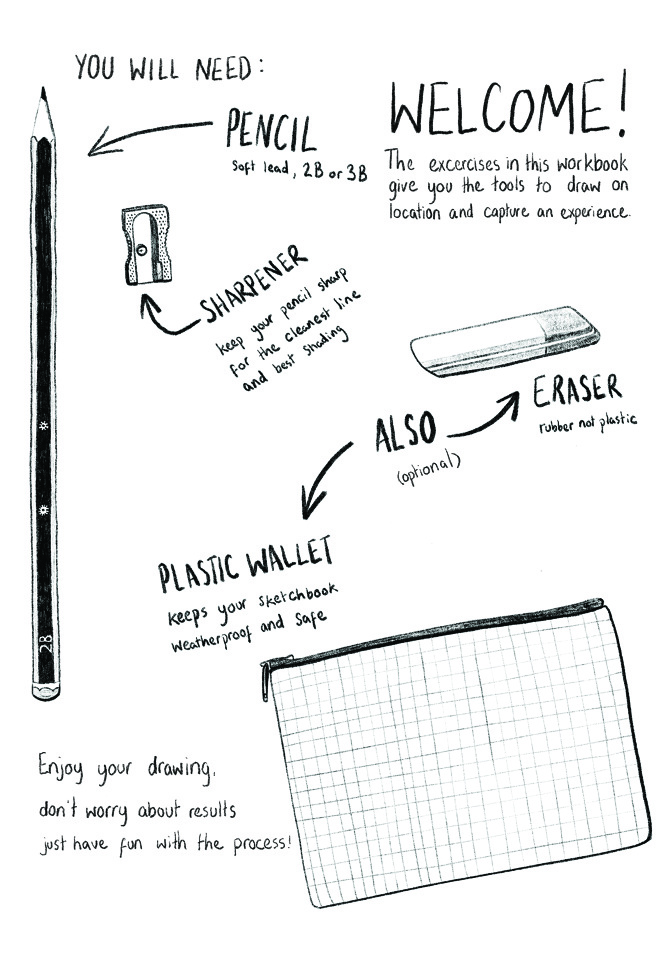 YOU WILL NEED:
PENCIL
Soft lead, 2B or 3B
WELCOME!
The excercises in this workbook
give you the tools to draw on
location and capture an experience.
SHARPENER
keep your pencil sharp
for the cleanest line
and best shading
ERASER
rubber not plastic
ALSO
(optional)
PLASTIC WALLET
keeps your sketchbook
weatherproof and safe
2B
Enjoy your drawing,
don't worry about results
just have fun with the process!